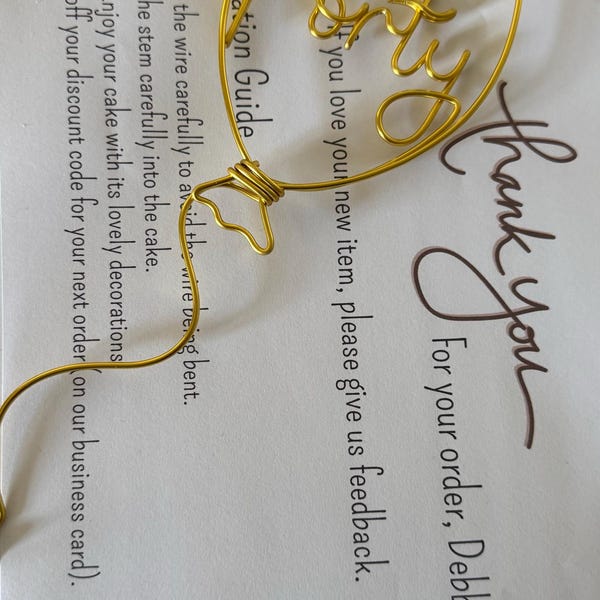 thank you
For your order, Debb
If you love your new item, please give us feedback.
ation Guide
the wire carefully to avoid the wire being bent.
he stem carefully into the cake.
njoy your cake with its lovely decorations
off your discount code for your next order (on our business card).